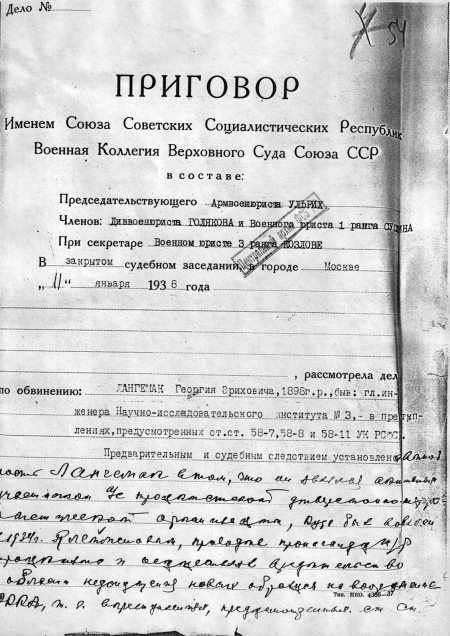 Дело №
54
ПРИГОВОР
Именем Союза Советских Социалистических Республик
Военная Коллегия Верховного Суда Союза ССР
в составе:
Председательствующего Армвоенюриста УЛЬРИХ
Членов: Диввоенюриста ГОЛЯКОВА и Военного юриста 1 ранга
При секретаре Военном юристе 3 ранга КОЗЛОВЕ
В закрытом судебном заседании, в городе Москве
„ 11 “ января 1938 года
, рассмотрела дел
по обвинению: ЛАНГЕМАК Георгия Эриховича, 1898г.р., быв: гл.ин-
женера Научно-исследовательского института № 3,- в преступ-
лениях, предусмотренных ст.ст. 58-7, 58-8 и 58-11 УК РСФСР.
Предварительным и судебным следствием установлено
Лангемак в том, что он являлся активным
участником а/с троцкистской диверсионно-
организации, куда был
1934г. Клейменовым, проводил
и вредительство
в области недопущения новых образцов на вооружение
РККА, т. е. в преступлениях, предусмотренных ст. ст.
Тип. НКО. 4366—37